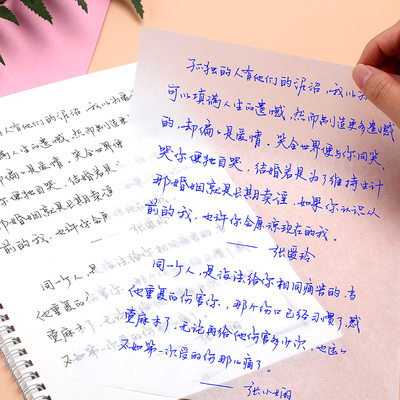 孤独的人有他们的泥沼，我以为爱
可以填满人生的遗憾，然而制造更多遗憾
的，却偏偏是爱情，笑全世界便与你同笑，
哭你便独自哭，结婚若是为了维持生计
那婚姻就是长期卖淫，如果你认识从
前的我，也许你会原谅现在的我。
——张爱玲
同一个人，是没法给你相同痛苦的，当
他重复而伤害你，那个伤口已经习惯了，感
觉麻木了，无论再给他伤害多少次，也远
不如第一次受的伤那么痛了。
——张小娴
孤独的人有他们的泥沼，我以为爱
可以填满人生的遗憾，然而制造更
的，却偏偏是爱情，笑全世界便
哭你便独自哭，结婚若是
那婚姻就是长期卖淫
前的我，也许你会原
张爱玲
同一个人，是
他重复而伤害
觉麻木了，无论
不如第一次